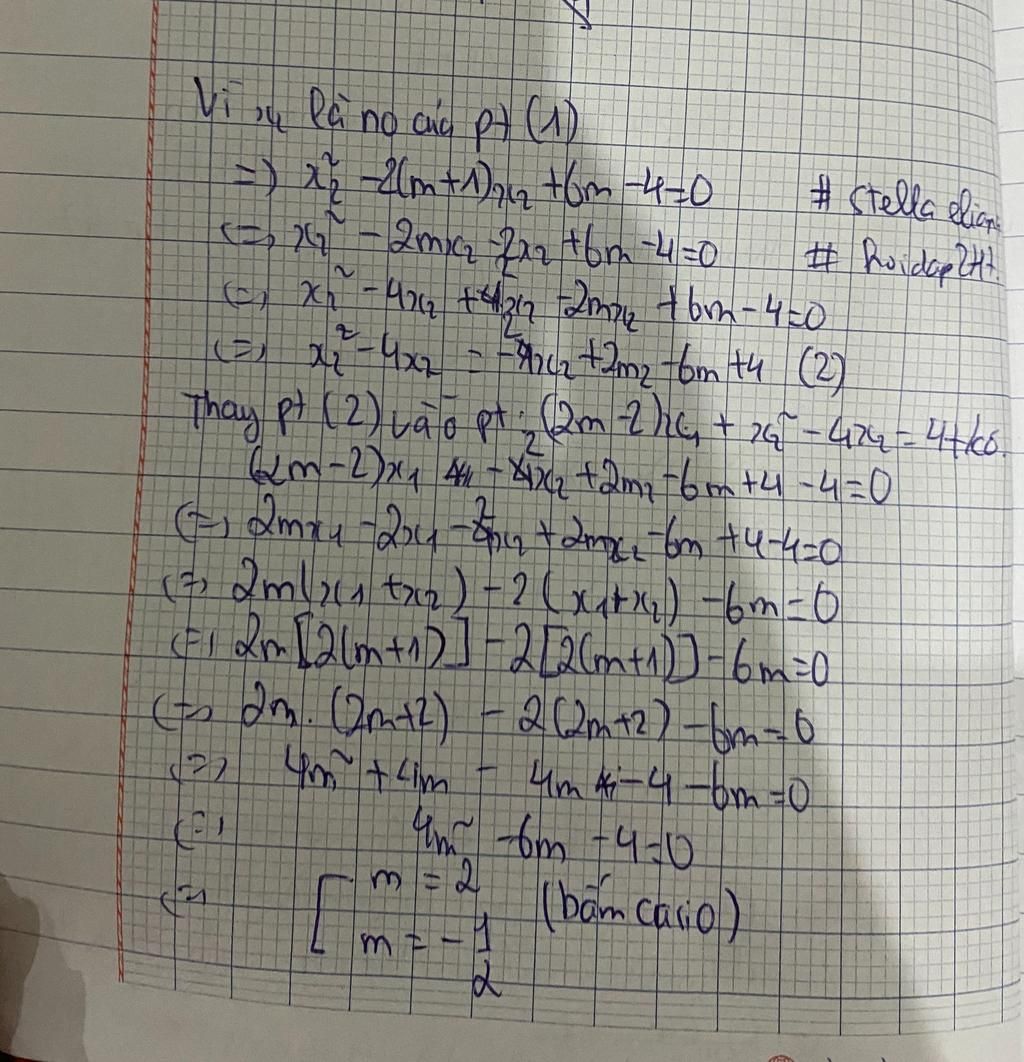 Vì x₂ là no của pt (1)
=) x₂² - 2(m+1)x₂ + 6m - 4 = 0 # Stella elian
(=) x₂² - 2mx₂ - 2x₂ + 6m - 4 = 0 # hoidap247
(=) x₂² - 4x₂ + 2x₂ - 2mx₂ + 6m - 4 = 0
(=) x₂² - 4x₂ = -2x₂ + 2m₂ - 6m + 4 (2)
Thay pt (2) vào pt : (2m-2)x₁ + x₂² - 4x₂ = 4 + kó.
(2m-2)x₁ - 2x₂ + 2m₂ - 6m + 4 - 4 = 0
(=) 2mx₁ - 2x₁ - 2x₂ + 2mx₂ - 6m + 4 - 4 = 0
(=) 2m(x₁ + x₂) - 2(x₁+x₂) - 6m = 0
(=) 2m[2(m+1)] - 2[2(m+1)] - 6m = 0
(=) 2m.(2m+2) - 2(2m+2) - 6m = 0
(=) 4m² + 4m - 4m - 4 - 6m = 0
(=) 4m² - 6m - 4 = 0
(=) [ m = 2 (bấm casio)
m = -1/2